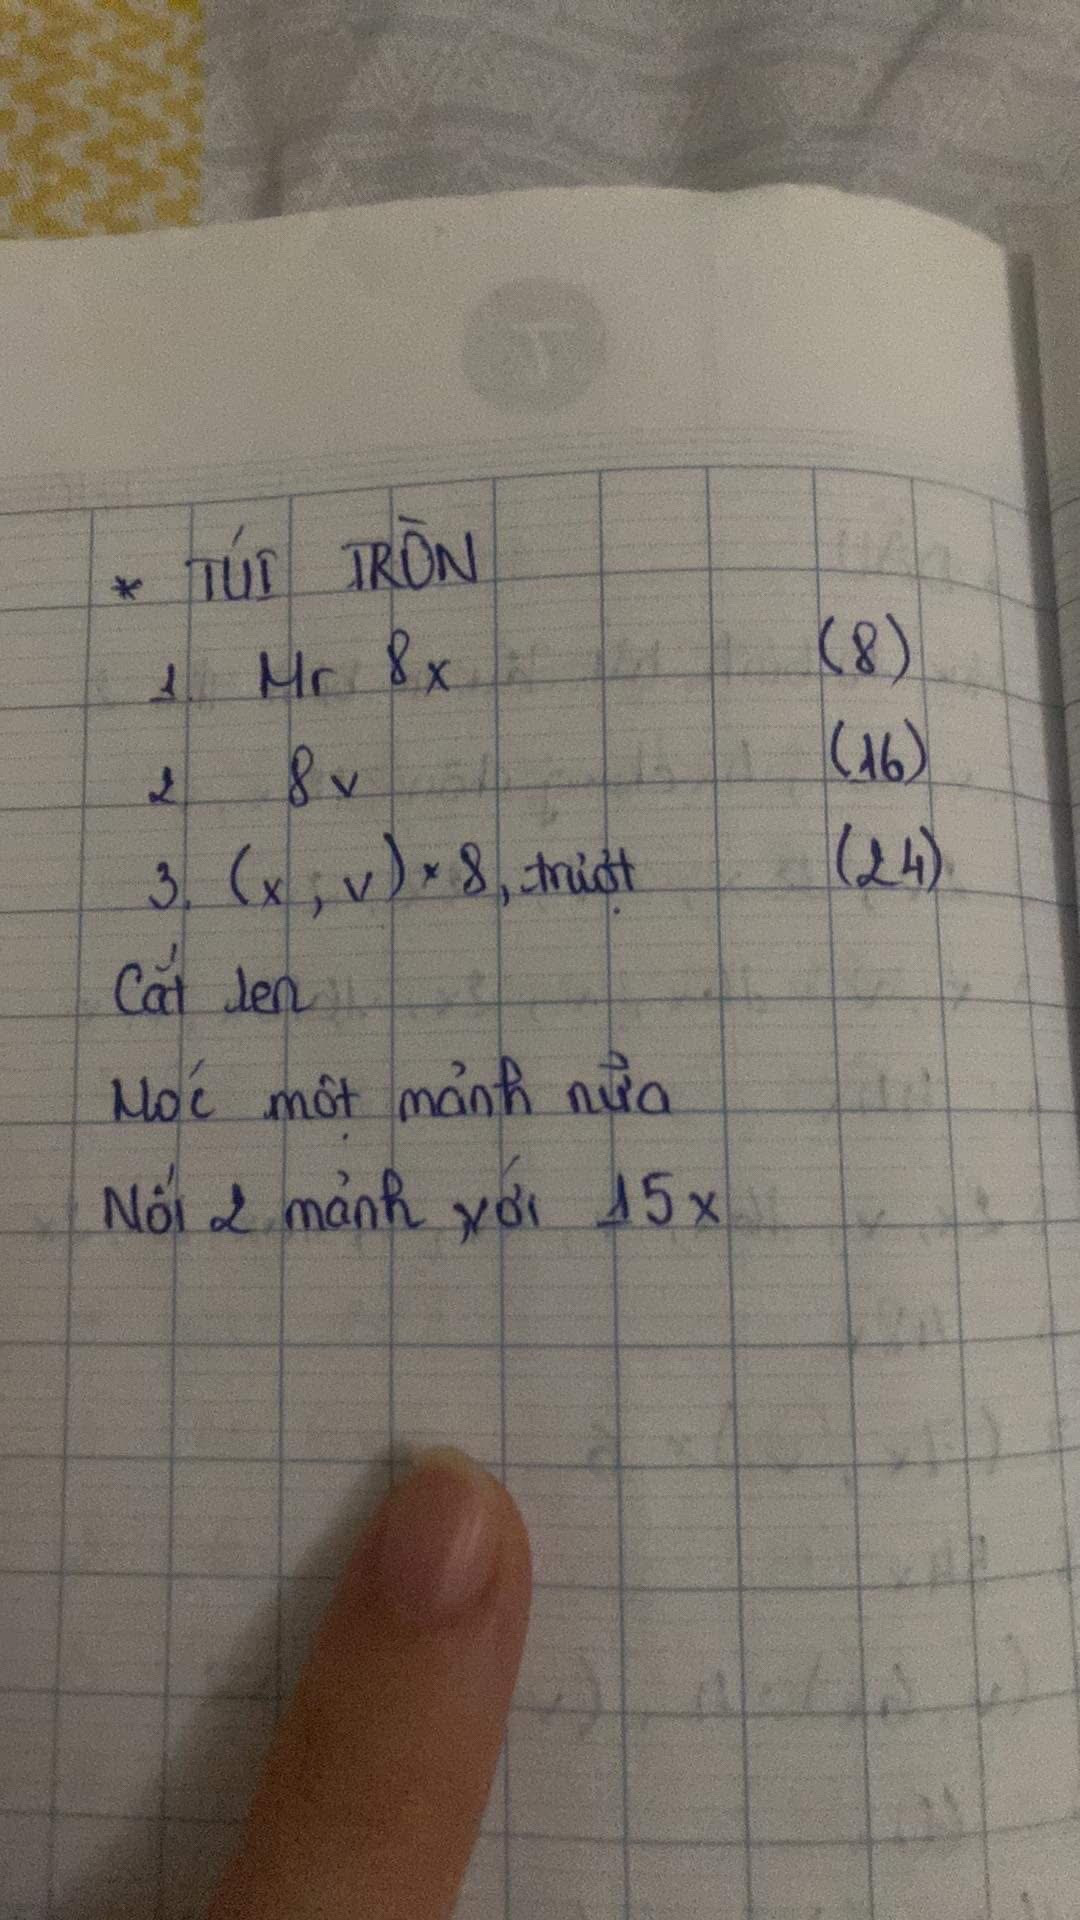 * TÚI TRÒN
1. Mr 8x (8)
2 8v (16)
3. (x, v) * 8, trượt (24)
Cắt len
Móc một mảnh nữa
Nối 2 mảnh với 15x